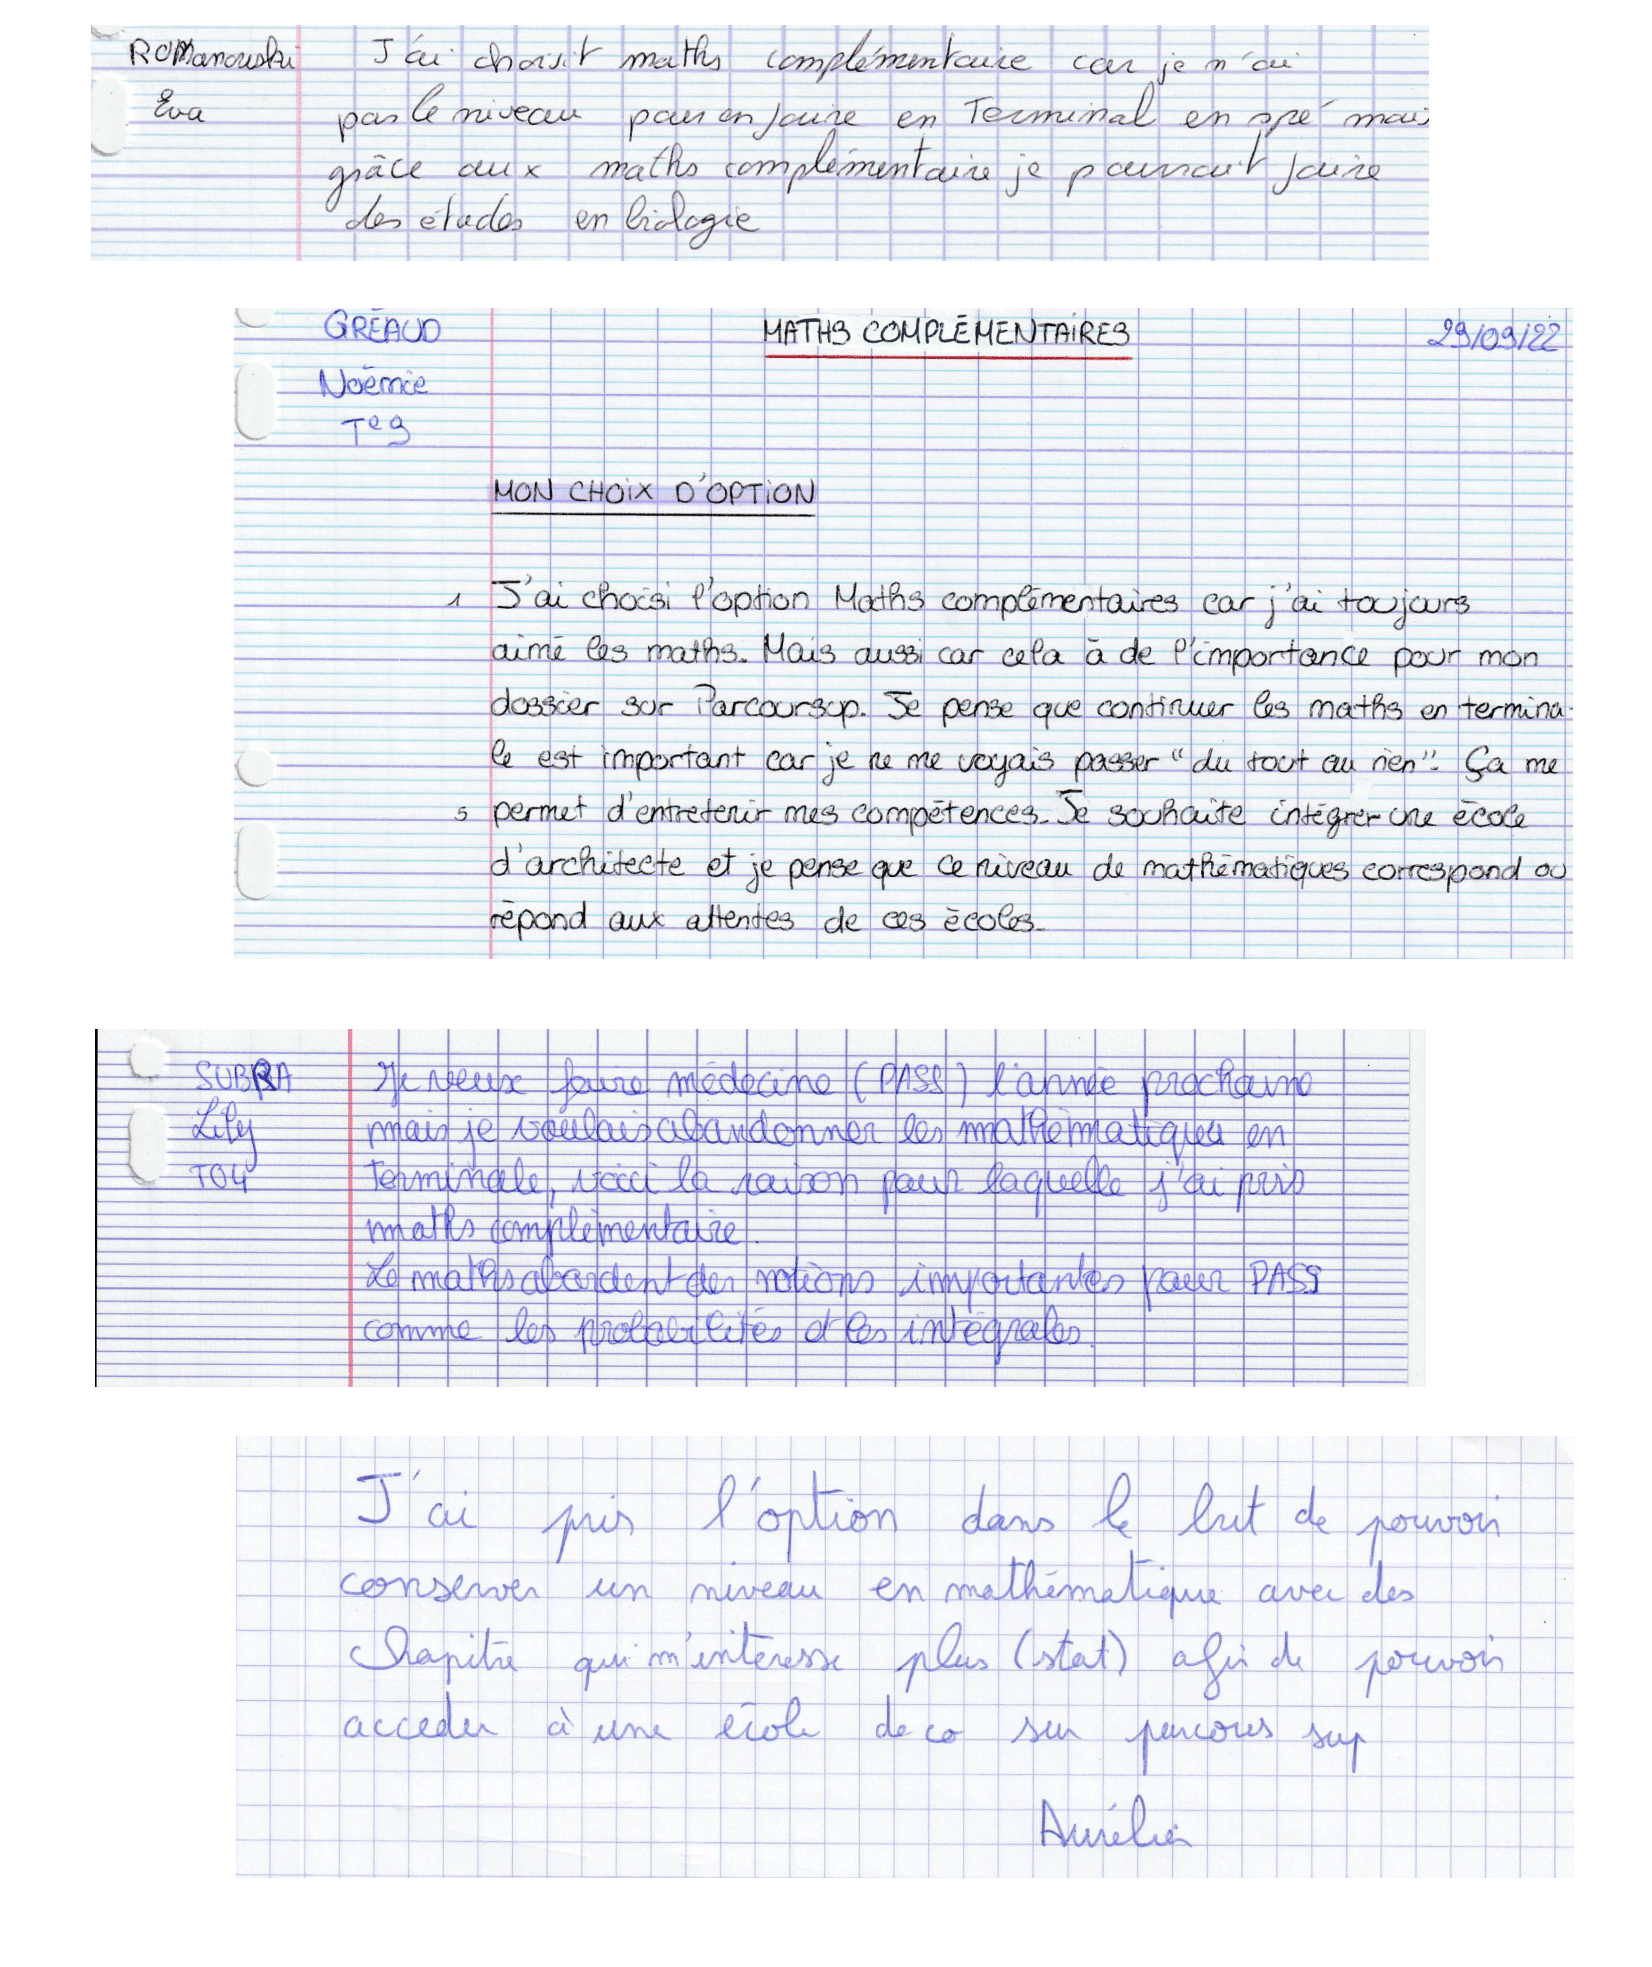 ROMANOWSKI J'ai choisit maths complémentaire car je n'ai
Eva pas le niveau pour en faire en Terminal en spé mais
grâce aux maths complémentaire je pourrait faire
des études en biologie
GRÉAUD MATHS COMPLÉMENTAIRES 29/09/22
Noémie
Te9
MON CHOIX D'OPTION
1 J'ai choisi l'option Maths complémentaires car j'ai toujours
aimé les maths. Mais aussi car cela à de l'importance pour mon
dossier sur Parcoursup. Je pense que continuer les maths en termina-
le est important car je ne me voyais passer "du tout au rien". Ça me
5 permet d'entretenir mes compétences. Je souhaite intégrer une école
d'architecte et je pense que ce niveau de mathématiques correspond ou
répond aux attentes de ces écoles.
SUBRA Je veux faire médecine (PASS) l'année prochaine
Lily mais je voulais abandonner les mathématiques en
T04 Terminale, voici la raison pour laquelle j'ai pris
maths complémentaire.
Le maths abordent des notions importantes pour PASS
comme les probabilités et les intégrales.
J'ai pris l'option dans le but de pouvoir
conserver un niveau en mathématique avec des
chapitre qui m'intéresse plus (stat) afin de pouvoir
acceder à une école de co sur parcours sup
Aurélien